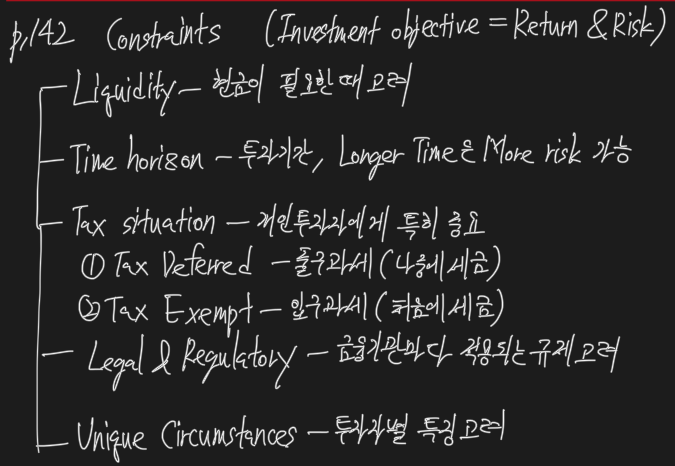 p.142 Constraints (Investment objective = Return & Risk)
Liquidity - 현금이 필요한 때 고려
Time horison - 투자기간, Longer Time은 More risk 가능
Tax situation - 개인투자자에게 특히 중요
① Tax Deferred - 출구과세 (나중에 세금)
② Tax Exempt - 입구과세 (처음에 세금)
Legal & Regulatory - 금융기관마다 적용되는 규제 고려
Unique Circumstances - 투자자별 특징 고려